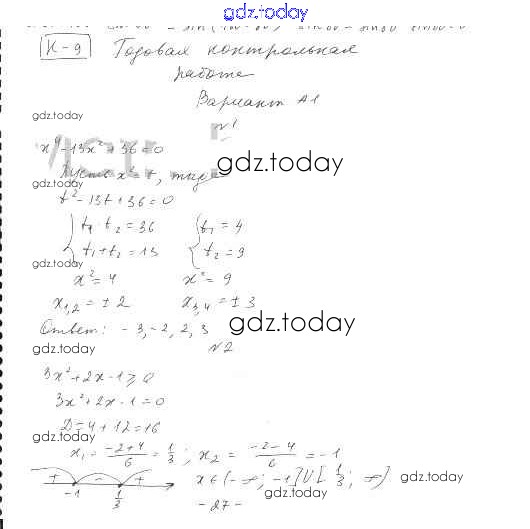 gdz.today
К-9 Годовая контрольная
работа
Вариант А1
gdz.today
№1
x⁴-13x²+36=0
gdz.today
Пусть x²=t, тогда
gdz.today
t²-13t+36=0
t₁·t₂=36 t₁=4
t₁+t₂=13 t₂=9
gdz.today
x²=4 x²=9
x₁,₂=±2 x₃,₄=±3
Ответ: -3,-2,2,3
gdz.today
gdz.today
№2
3x²+2x-1≥0
3x²+2x-1=0
D=4+12=16
gdz.today
x₁=(-2+4)/6=1/3; x₂=(-2-4)/6=-1
+ - +
-1 1/3
x∈(-∞;-1]U[1/3;∞)
gdz.today
-27-
gdz.today